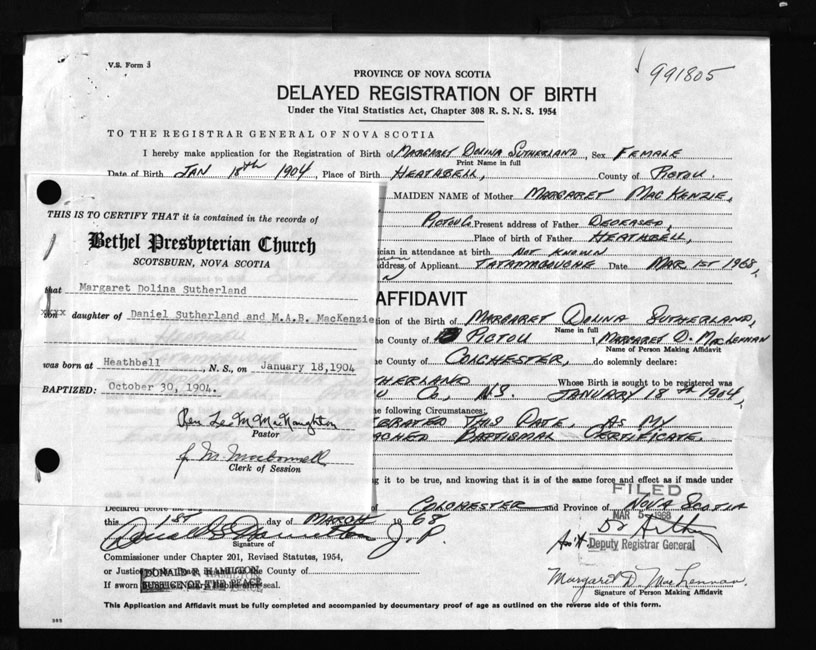 V.S. Form 3
991805
PROVINCE OF NOVA SCOTIA
DELAYED REGISTRATION OF BIRTH
Under the Vital Statistics Act, Chapter 308 R. S. N. S. 1954
TO THE REGISTRAR GENERAL OF NOVA SCOTIA
I hereby make application for the Registration of Birth of MARGARET DOLINA SUTHERLAND, Sex FEMALE
Print Name in full
Date of Birth JAN 18th 1904, Place of Birth HEATHBELL, County of PICTOU.
MAIDEN NAME of Mother MARGARET MACKENZIE,
PICTOU Co. Present address of Father DECEASED,
Place of birth of Father HEATHBELL,
ician in attendance at birth NOT KNOWN
address of Applicant TATAMAGOUCHE Date MAR 1ST 1968,
AFFIDAVIT
tion of the Birth of MARGARET DOLINA SUTHERLAND,
Name in full
he County of PICTOU MARGARET D. MACLENNAN
Name of Person Making Affidavit
he County of COLCHESTER, do solemnly declare:
THERLAND Whose Birth is sought to be registered was
U Co, N.S. JANUARY 18TH 1904,
he following Circumstances:
EBRATED THIS DATE, AS MY
ACHED BAPTISMAL CERTIFICATE.
ng it to be true, and knowing that it is of the same force and effect as if made under
THIS IS TO CERTIFY THAT it is contained in the records of
Bethel Presbyterian Church
SCOTSBURN, NOVA SCOTIA
that Margaret Dolina Sutherland
daughter of Daniel Sutherland and M.A.B. MacKenzie
was born at Heathbell, N. S., on January 18,1904
BAPTIZED: October 30, 1904.
Rev. Leo M. MacNaughton
Pastor
J. M. Macdonnell
Clerk of Session
Declared before me COLCHESTER and Province of NOVA SCOTIA
FILED
MAR 5 1968
this 1st day of MARCH 1968
Donald F. Hamilton J.P.
Signature of
Ass't. Deputy Registrar General
Commissioner under Chapter 201, Revised Statutes, 1954,
or Justice DONALD F. HAMILTON County of
If sworn JUSTICE OF THE PEACE seal.
Margaret D. MacLennan
Signature of Person Making Affidavit
This Application and Affidavit must be fully completed and accompanied by documentary proof of age as outlined on the reverse side of this form.